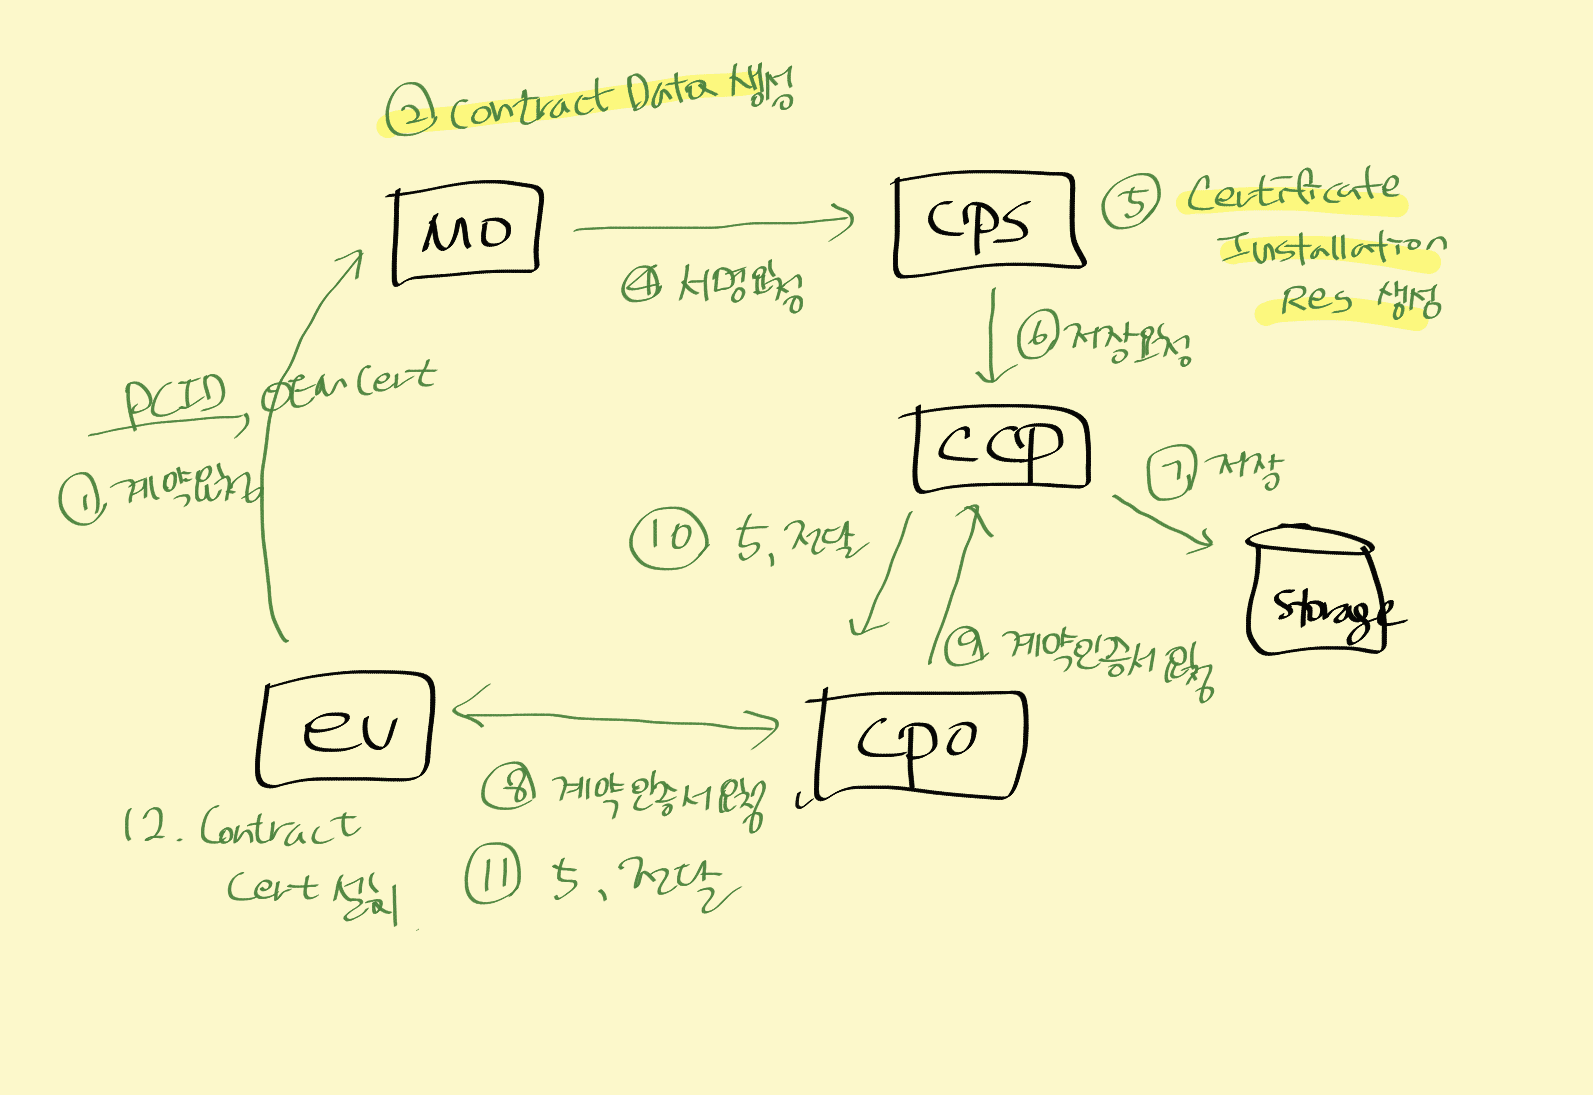 ② Contract Data 생성
MO
④ 서명요청
CPS
⑤ Certificate
Installation
Res 생성
⑥ 저장요청
PCID, OEM Cert
① 계약요청
CCP
⑦ 저장
Storage
⑩ 5, 전달
⑨ 계약인증서 요청
EV
CPO
⑧ 계약인증서 요청
⑪ 5, 전달
12. Contract
Cert 설치